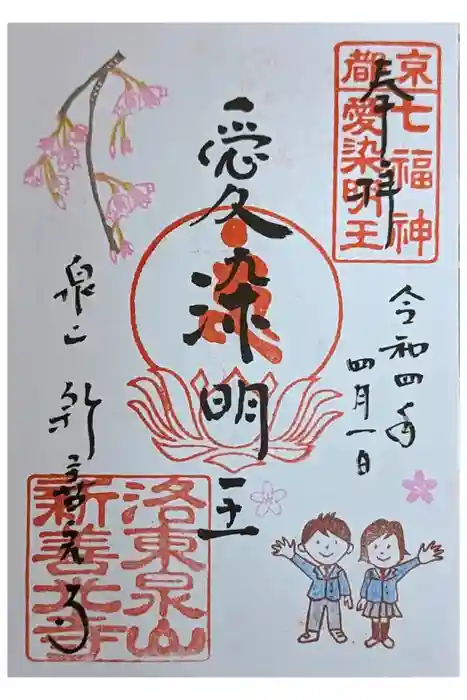 奉拝
京都七福神
愛染明王
令和四年
四月一日
愛染明王
泉山 新善光寺
洛東泉山
新善光寺